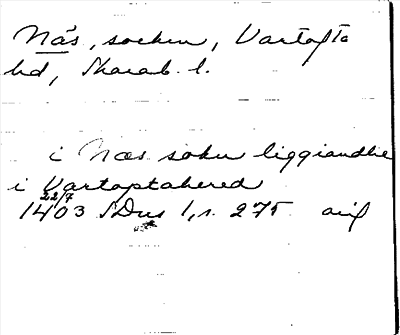 Näs, socken, Vartofta
hd, Skarab. l.
i Næs sokn liggiandhe
i Vartoptahered
22/7
1403 SDns 1, s. 275 avif